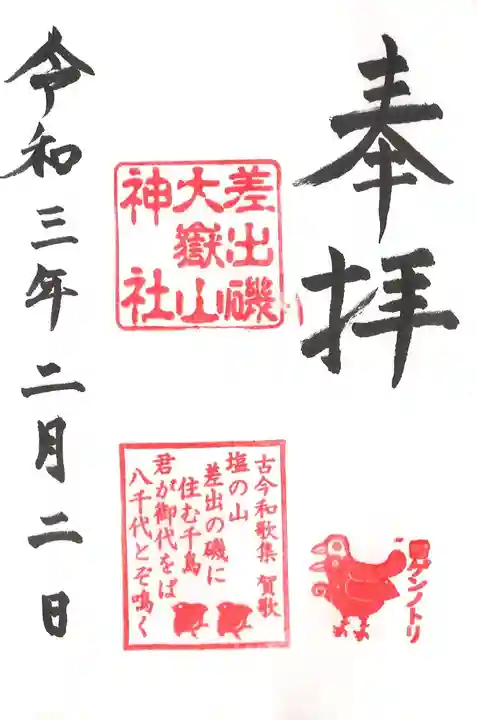 奉拝
差出磯
大嶽山
神社
古今和歌集 賀歌
塩の山
差出の磯に
住む千鳥
君が御代をば
八千代とぞ鳴く
ケンノトリ
令和三年二月二日